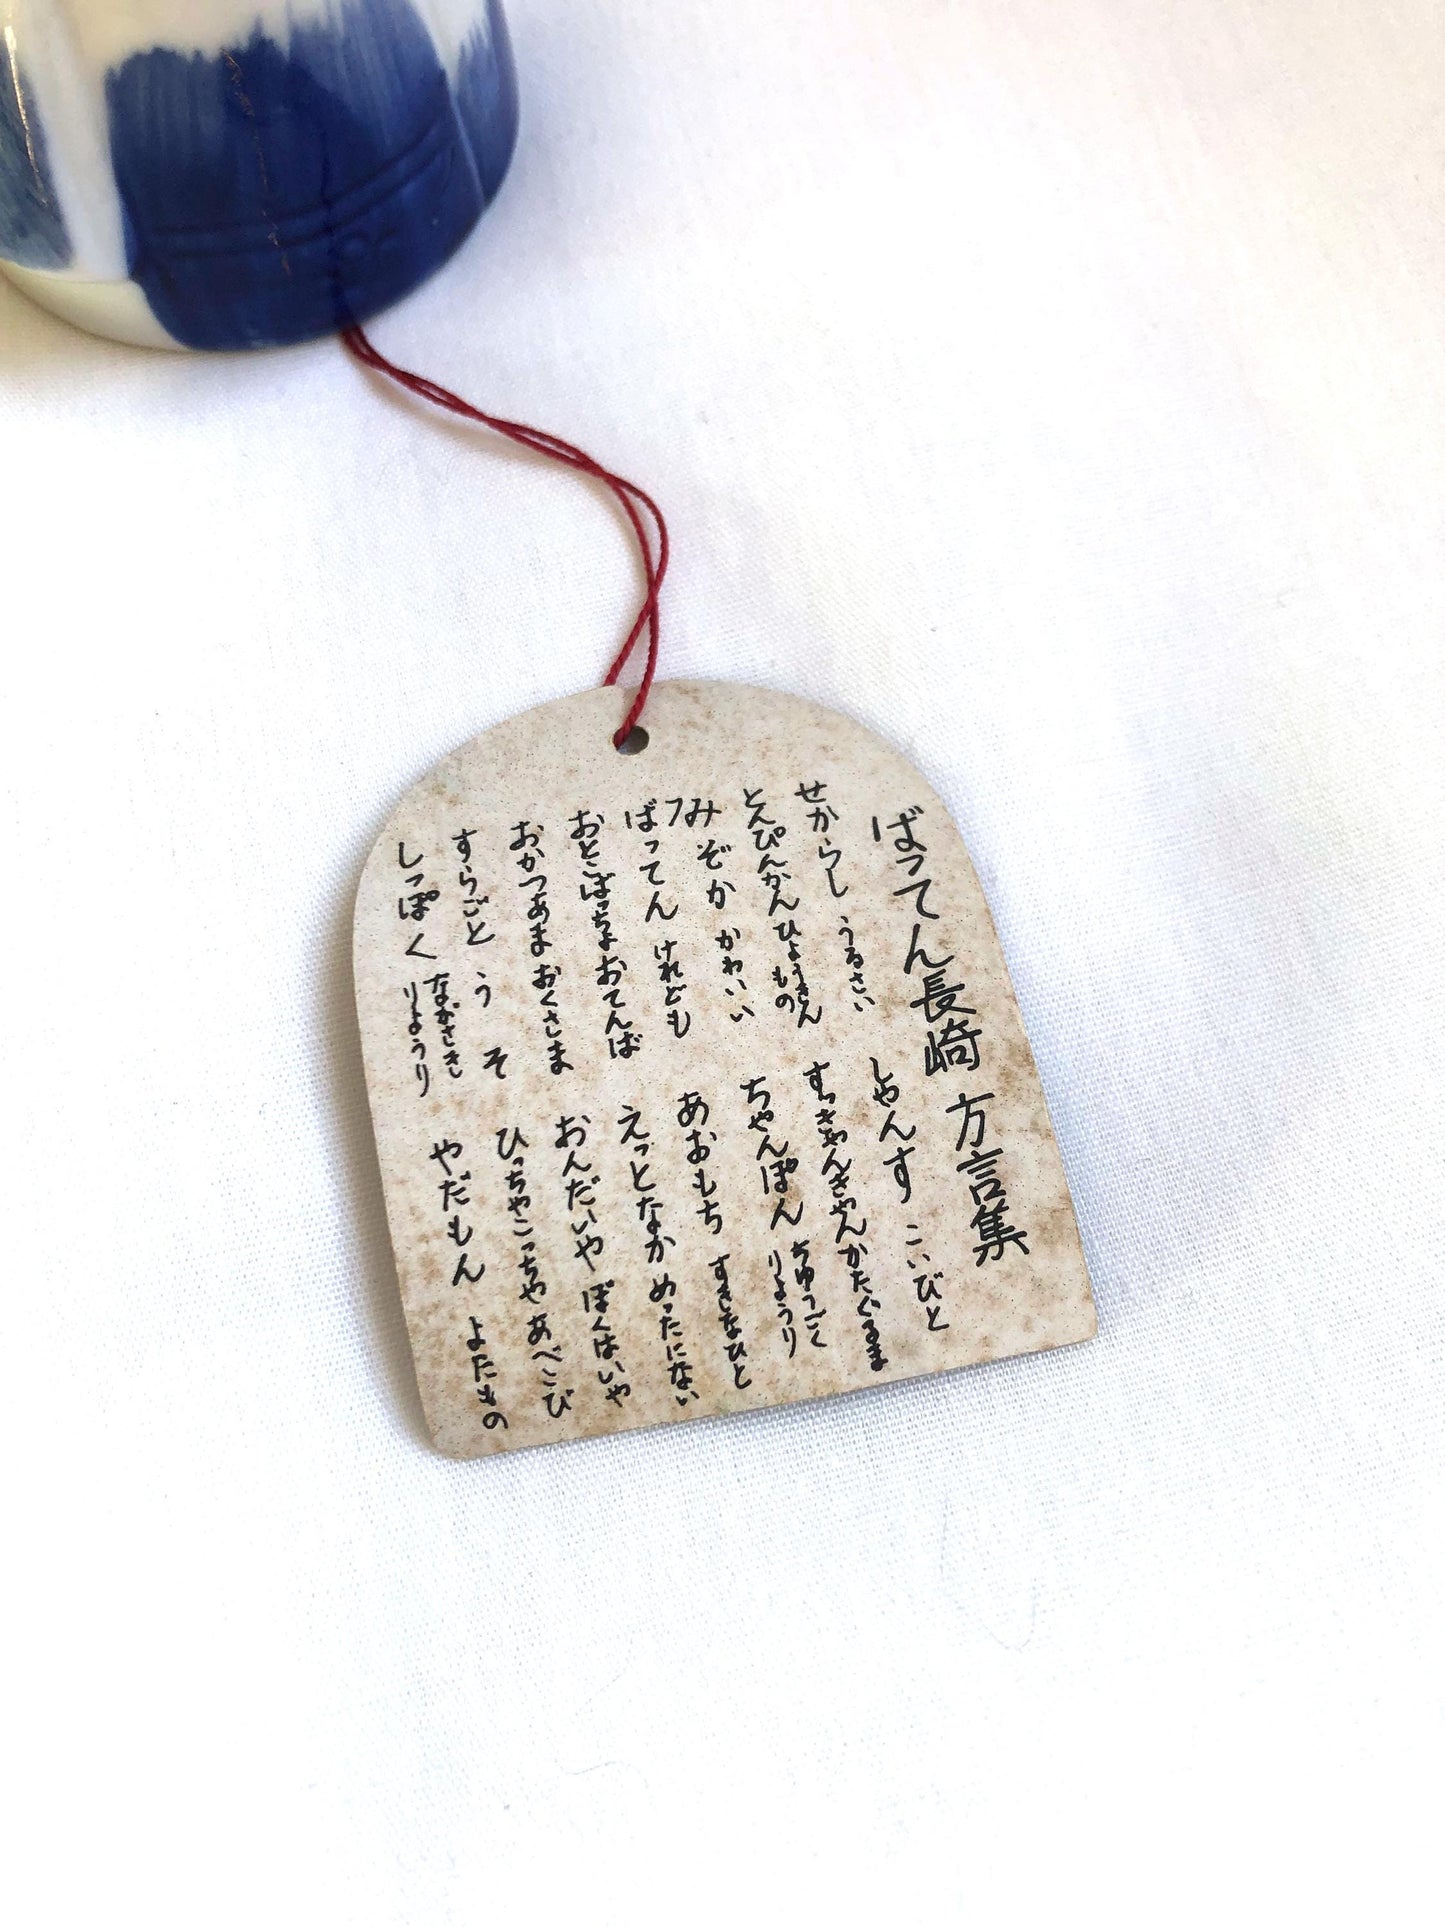 ばってん長崎方言集
せからし うるさい
とんぴんかん ひょうきんもの
みぞか かわいい
ばってん けれども
おとこばっちょ おてんば
おかつあま おくさま
すらごと うそ
しっぽく ながさきしりょうり
しゃんす こいびと
すっきゃんきゃん かたぐるま
ちゃんぽん ちゅうごくりょうり
あおもち すきなひと
えっとなか めったにない
おんだいや ぼくはいや
ひっちゃこっちゃ あべこび
やだもん よたもの